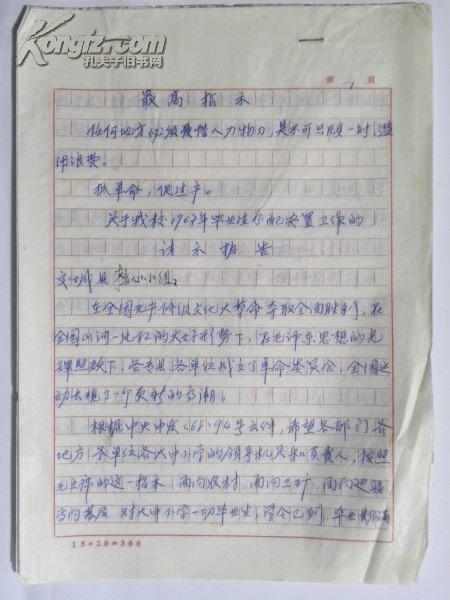 Kongfz.com
孔夫子旧书网
第 頁
最高指示
任何地方必须爱惜人力物力,是不可只顾一时,滥
用浪费。
抓革命,促生产。
关于我校1967年毕业生分配安置工作的
请示报告
交城县核心小组:
在全国无产阶级文化大革命夺取全面胜利,在
全国山河一片红的大好形势下,在毛泽东思想的光
辉照耀下,各专县、各单位成立了革命委员会,全国
动出现了一个更新的高潮。
根据中央中发〈68〉94号文件,希望各部门各
地方、各单位各大中小学的领导机关和负责人,按照
毛主席的这一指示,面向农村、面向工矿、面向边疆
面向基层 对大中小学一切毕业生,
15×20=300